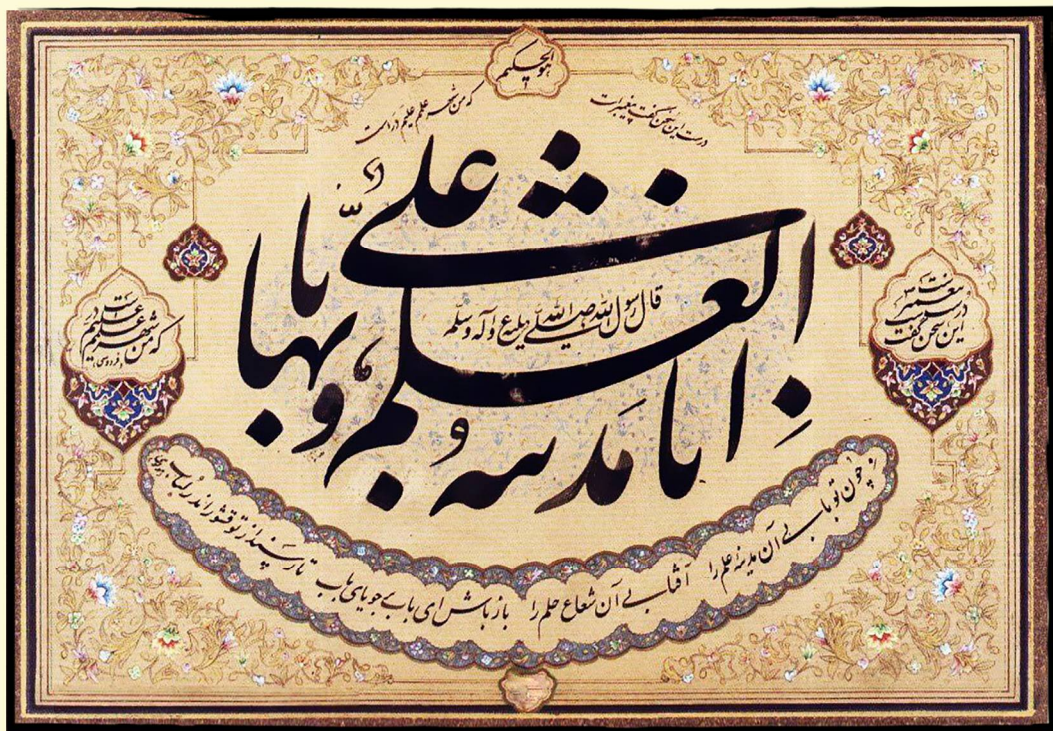 هو الحکیم
درست این سخن گفت پیغمبرست
که من شهر علمم علیم در است
انا مدینه العلم و علی بابها
قال رسول الله صلی الله علیه و آله و سلم
درست این سخن گفت پیغمبرست
که من شهر علمم علیم در است
(فردوسی)
چون تو بابی آن مدینهٔ علم را
آفتابی آن شعاع حلم را
باز باش ای باب بر جویای باب
تا رسند از تو قشور اندر لباب